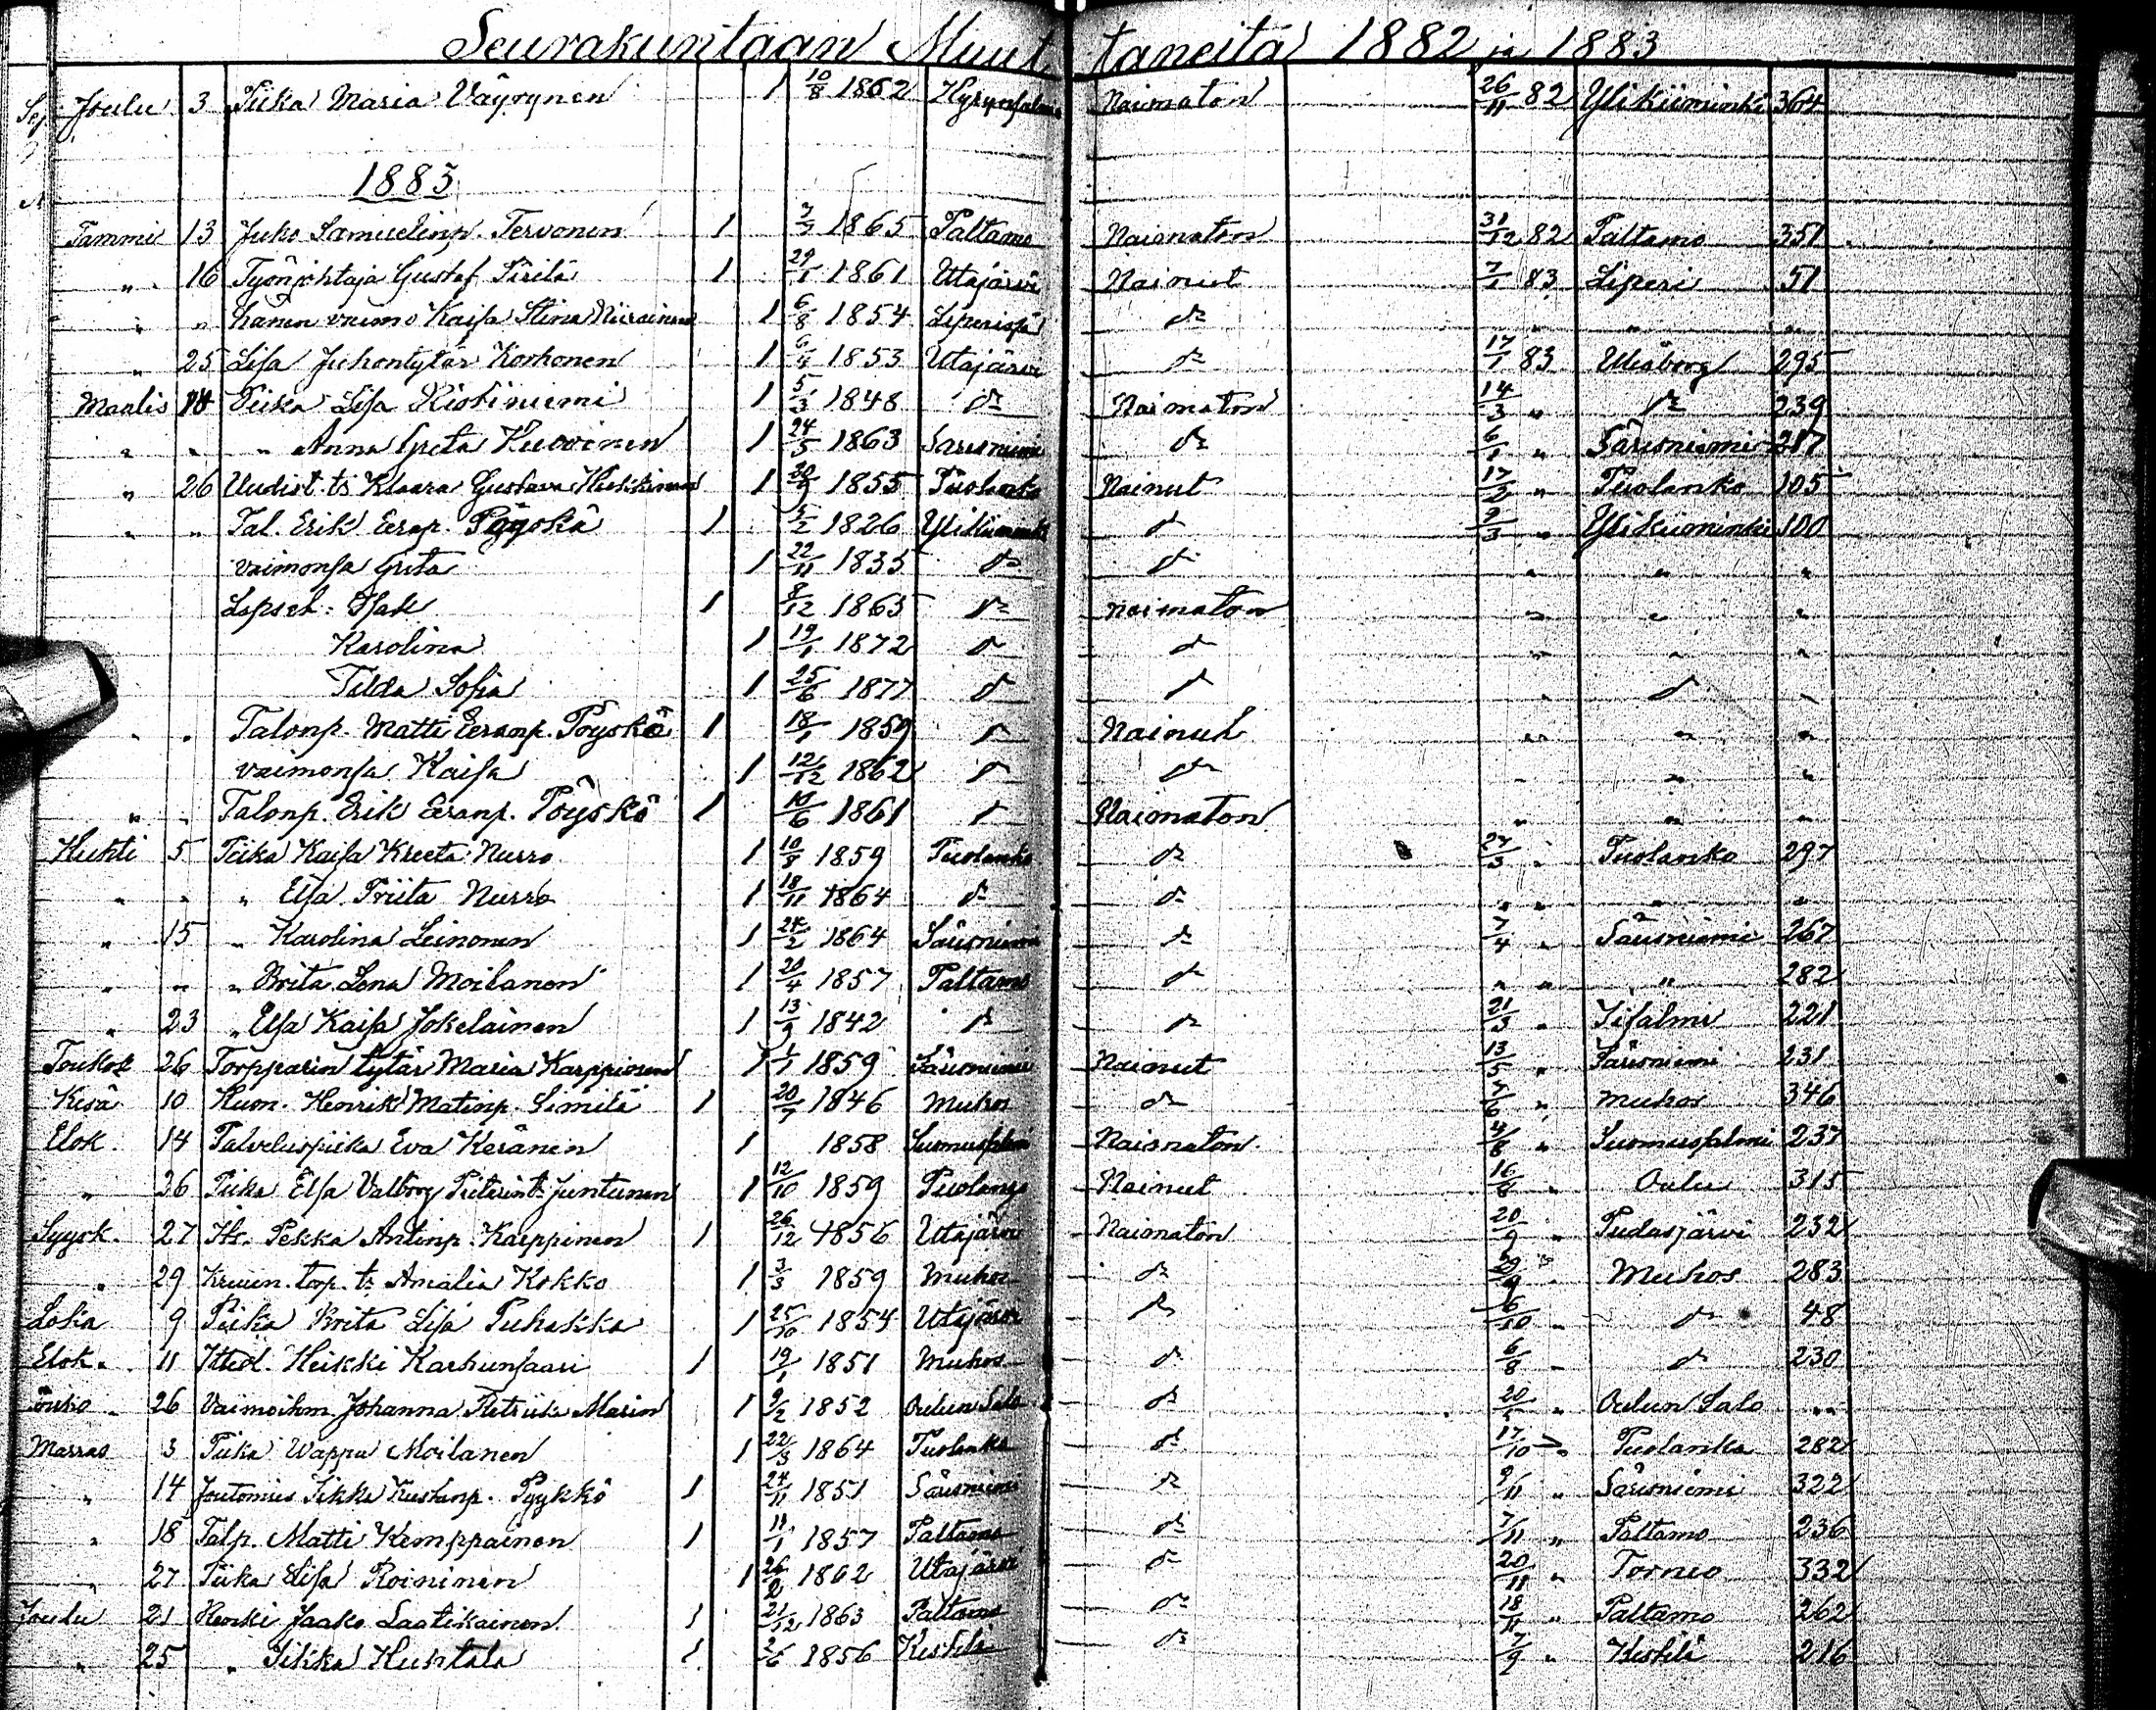 Seurakuntaan Muuttaneita 1882 ja 1883
Joulu 3 Piika Maria Väyrynen 1 10/8 1862 Hyrynsalmi Naimaton 26/11 82 Ylikiiminki 364
1883
Tammi 13 Juho Samuelinp. Tervonen 1 1865 Paltamo Naimaton 31/12 82 Paltamo 351
" 16 Työnjohtaja Gustaf Siirilä 1 29/1 1861 Utajärvi Nainut 7/1 83 Liperi 51
" " hänen vaimo Kaisa Stina Niirainen 1 6/8 1854 Liperissä do " " "
" 25 Lisa Juhontytär Korhonen 1 6/4 1853 Utajärvi do 17/1 83 Uleåborg 295
Maalis 18 Piika Lisa Kiotiniemi 1 5/3 1848 do Naimaton 14/3 " do 239
" " " Anna Greta Kuovinen 1 24/5 1863 Säresniemi do 6/1 " Säresniemi 287
" 26 Uudist. tr Klaara Gustava Heikkinen 1 1855 Puolanko Nainut 17/2 " Puolanko 105
" " Tal. Erik Eerap. Pöyskö 1 5/2 1826 Ylikiiminki do 9/3 " Ylikiiminki 100
vaimonsa Greta 1 22/11 1835 do do " " "
Lapset: Isak 1 8/12 1865 do naimaton " " "
Karolina 1 19/1 1872 do do " " "
Tilda Sofia 1 25/6 1877 do do " do "
" " Talonp. Matti Eeranp. Pöyskö 1 18/1 1859 do Nainut " " "
vaimonsa Kaisa 1 12/12 1862 do do " " "
" " Talonp. Erik Eeranp. Pöyskö 1 10/6 1861 do Naimaton " " "
Huhti 5 Piika Kaisa Kreeta Nurro 1 10/8 1859 Puolanko do 27/3 " Puolanko 297
" " " Elsa Priita Nurro 1 18/11 1864 do do " " " "
" 15 " Karolina Leinonen 1 24/2 1864 Säresniemi do 7/4 " Säresniemi 267
" " " Brita Lena Moilanen 1 20/4 1857 Paltamo do " " " 282
" 23 " Elsa Kaisa Jokelainen 1 13/9 1842 do do 21/3 " Iisalmi 221
Toukok 26 Torpparin tytär Maria Karppinen 1 1/1 1859 Säresniemi Nainut 13/5 " Säresniemi 231
Kesä 10 Huon. Henrik Matinp. Similä 1 20/7 1846 Muhos do " Muhos 346
Elok. 14 Palveluspiika Eva Keränen 1 1858 Suomussalmi Naimaton 4/8 " Suomussalmi 237
" 26 Piika Elsa Valborg Pieterint. Juntunen 1 12/10 1859 Puolango Nainut 16/8 " Oulu 315
Syysk. 27 Its. Pekka Antinp. Karppinen 1 26/12 1856 Utajärvi Naimaton 20/9 " Pudasjärvi 232
" 29 Kruun. torp. tr Amalia Kokko 1 3/3 1859 Muhos do 29/9 " Muhos 283
Loka 9 Piika Brita Lisa Puhakka 1 25/10 1854 Utajärvi do 6/10 " do 48
Elok. 11 Heikki Karhunsaari 1 19/1 1851 Muhos do 6/8 " do 230
Touko 26 Vaimoihm. Johanna Fretriika Marin 1 9/2 1852 Oulun Salo do 20/5 " Oulun Salo "
Marras 3 Piika Wappu Moilanen 1 22/3 1864 Puolanko do 17/10 " Puolanka 282
" 14 Joutomies Iikka Kustanp. Pyykkö 1 24/11 1851 Säresniemi do 9/11 " Säresniemi 322
" 18 Talp. Matti Kemppainen 1 11/1 1857 Paltamo do 7/11 " Paltamo 236
" 27 Piika Liisa Roininen 1 26/2 1862 Utajärvi do 20/11 " Tornio 332
Joulu 21 Renki Jaako Laatikainen 1 21/12 1863 Paltamo do 18/11 " Paltamo 262
" 25 " Iikka Huhtala 1 2/6 1856 Kestilä do 7/9 " Kestilä 216